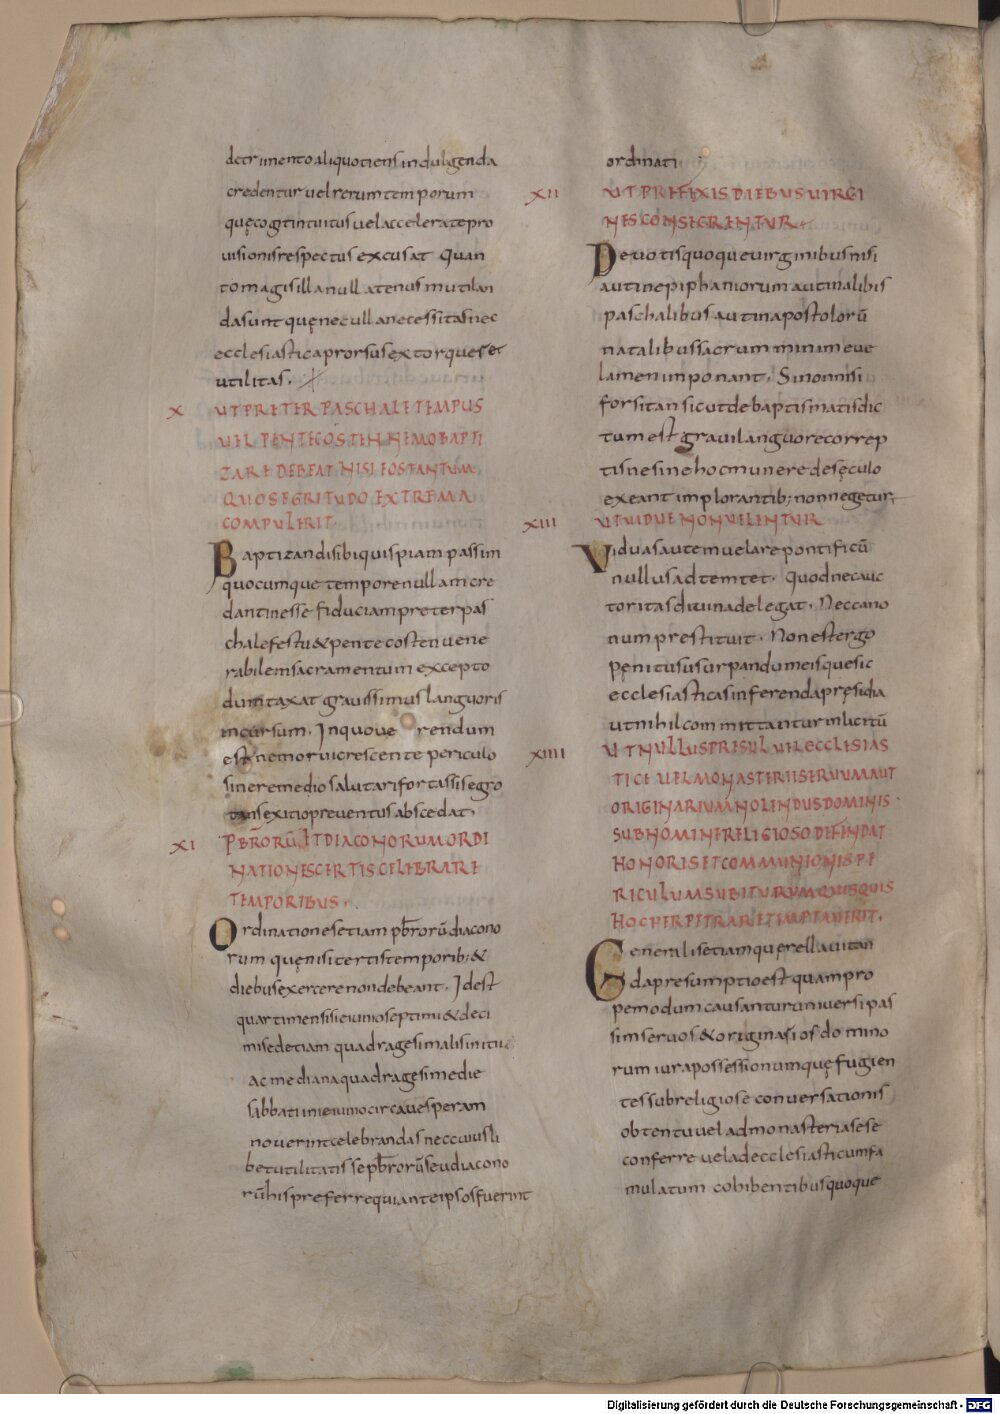 detrimento aliquotiens indulgenda
credentur vel rerum temporum
quę cogit intuitus vel acceleratę pro
visionis respectus excusat Quan
to magis illa nullatenus mutilan
da sunt quę nec ulla necessitas nec
ecclesiastica prorsus extorquet
utilitas.
X UT PRETER PASCHALE TEMPUS
VEL PENTECOSTEN NEMO BAPTI
ZARE DEBEAT NISI EOS TANTUM
QUOS EGRITUDO EXTREMA
COMPULERIT
Baptizandi sibi quispiam passim
quocumque tempore nullam cre
dant inesse fiduciam preter pas
chale festū & pentecosten vene
rabilem sacramentum excepto
dumtaxat gravissimus languoris
incursum. In quo ve rendum
est ne morvi crescente periculo
sine remedio salutari fortassis egro
tans exitio preventus abscedat.
XI PBRORŪ ET DIACONORUM ORDI
NATIONES CERTIS CELEBRARE
TEMPORIBUS.
Ordinationes etiam pbrorū diacono
rum quę nisi certis temporib; &
diebus exercere non debeant. Id est
quarti mensis ieiunio septimi & deci
mi sed etiam quadragesimalis initii
ac mediana quadragesime die
sabbati ieiunio circa vesperam
noverint celebrandas nec cuiusli
bet utilitatis se pbrorū seu diacono
rū his preferre qui ante ipsos fuerint
ordinati
XII UT PREFIXIS DIEBUS VIRGI
NES CONSECRENTUR
Devotis quoque virginibus nisi
aut in epiphaniorum aut in albis
paschalibus aut in apostolorū
natalibus sacrum minime ve
lamen imponant. Si non nisi
forsitan sicut de baptismatis dic
tum est gravi languore correp
tis ne sine hoc munere de sęculo
exeant implorantib; non negetur
XIII UT VIDUE NON VELENTUR
Viduas autem velare pontificū
nullus adtemtet. Quod nec auc
toritas divina delegat. Nec cano
num prestituit. Non est ergo
pęnitus usurpandum eisque sic
ecclesiastica sinferenda presidia
ut nihil committantur inlicitū
XIIII UT NULLUS PRESUL VEL ECCLESIAS
TICE VEL MONASTERII SERVUM AUT
ORIGINARIUM NOLENDUS DOMINIS
SUB NOMINE RELIGIOSO DEFENDAT
HONORIS ET COMMUNIONIS PE
RICULUM SUBITURUM QUISQUIS
HOC PERPETRARE TEMPTAVERIT.
Generalis etiam querella vitan
da presumptio est quam pro
pemodum causantur universi pas
sim servos & originarios domino
rum iura possessionumquę fugien
tes sub religiose conversationis
obtentu vel ad monasteria sese
conferre vel ad ecclesiasticum fa
mulatum cohibentibus quoque
Digitalisierung gefördert durch die Deutsche Forschungsgemeinschaft - DFG